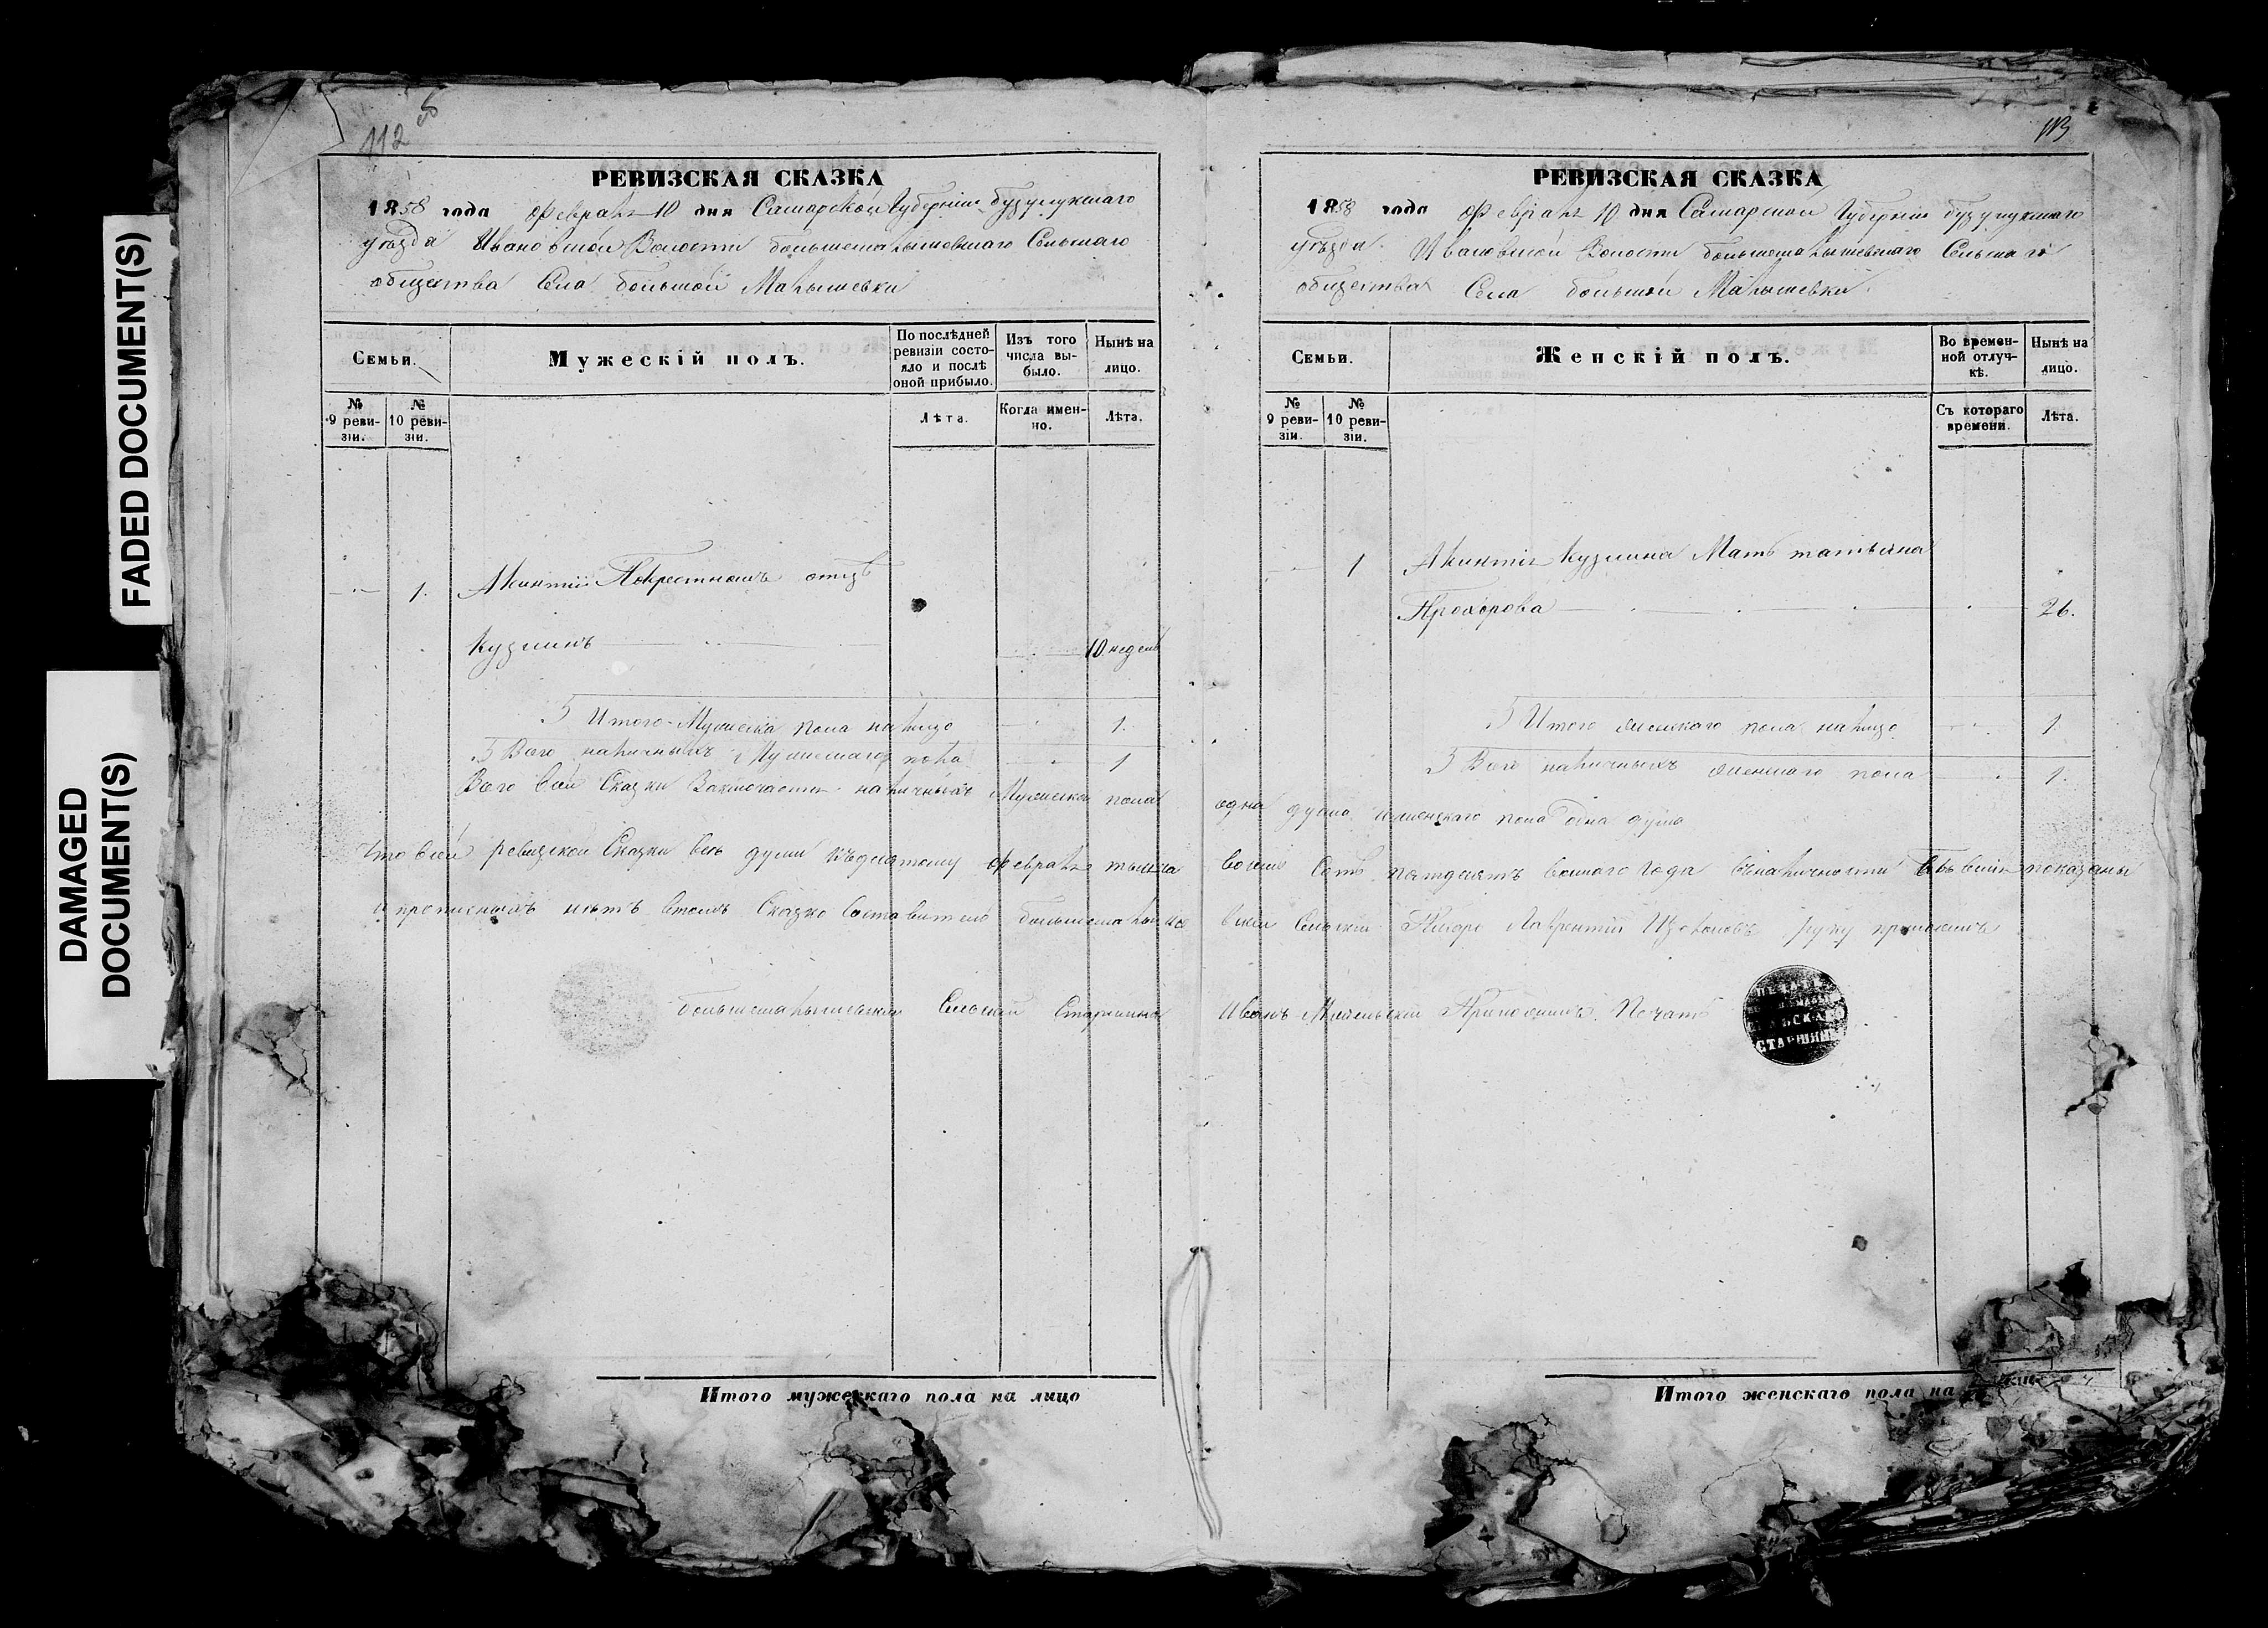 FADED DOCUMENT(S)
DAMAGED
DOCUMENT(S)
112
РЕВИЗСКАЯ СКАЗКА
1858 года Февраля 10 дня Самарской Губернiи бузулукскаго
уѣзда Ивановской Волости большемалышевскаго Сельскаго
общества Села большой Малышевки
Семьи.
Мужескiй полъ.
По послѣдней ревизiи состояло и послѣ оной прибыло.
Изъ того числа выбыло.
Нынѣ на лицо.
№ 9 ревизiи.
№ 10 ревизiи.
Лѣта.
Когда именно.
Лѣта.
1. Акинтiй Покрестномъ отцѣ
Кузминъ 10 недель
Итого Мужеска пола налицо 1.
Всего наличныхъ Мужескаго пола 1
Всего Сей Сказки Заключается наличныхъ Мужеска пола
Что всей ревизской Сказки Всѣ души къдесятому февраля тысяча
и прописныхъ нѣтъ втомъ Сказко Составитель большемалыше
большемалышевскiй Сельскiй Старшина
Итого мужескаго пола на лицо
113
РЕВИЗСКАЯ СКАЗКА
1858 года Февраля 10 дня Самарской Губернiи бузулукскаго
уѣзда Ивановской Волости большемалышевскаго Сельскаго
общества Села большой Малышевки.
Семьи.
Женскiй полъ.
Во временной отлучкѣ.
Нынѣ на лицо.
№ 9 ревизiи.
№ 10 ревизiи.
Съ котораго времени.
Лѣта.
1 Акинтiя Кузмина Мать татьяна
Прохорова 26.
Итого женскаго пола налицо 1.
Всего наличныхъ женскаго пола 1.
одна душа женскаго пола одна душа
восемь Сотъ пятдесятъ восмаго года вналичности показаны
вскiй Сельскiй Лаврентiй руку приложилъ
Иванъ Приложилъ Печать
СТАРШИНЫ
Итого женскаго пола на